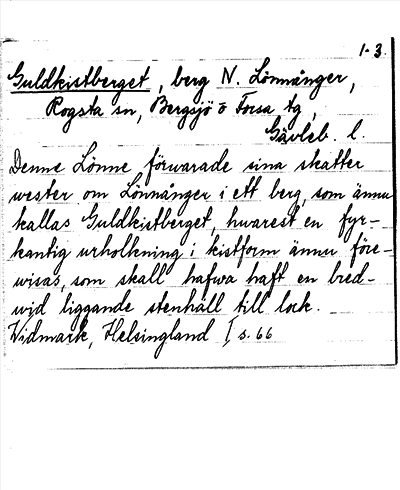 1-3.
Guldkistberget, berg N. Lönnånger,
Rogsta sn, Bergsjö o Forsa tg,
Gävleb. l.
Denne Lönne förwarade sina skatter
wester om Lönnånger i ett berg, som ännu
kallas Guldkistberget, hwarest en fyr-
kantig urholkning i kistform ännu före-
wisas, som skall hafwa haft en bred-
wid liggande stenhäll till lock.
Widmark, Helsingland I, s. 66